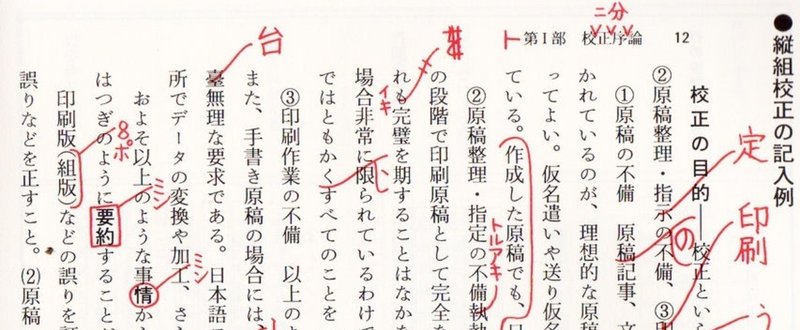 ●縦組校正の記入例
第Ⅰ部 校正序論 12
二分
校正の目的──校正とい
②原稿整理・指示の不備、③
定
印刷
①原稿の不備 原稿記事、文
の
かれているのが、理想的な原
ってよい。仮名遣いや送り仮名
ている。作成した原稿でも、
②原稿整理・指定の不備執
トルアキ
の段階で印刷原稿として完全な
れも完璧を期することはなかな
イキ
場合非常に限られているわけで
ではともかくすべてのことを
③印刷作業の不備 以上の
また、手書き原稿の場合には
臺無理な要求である。日本語
台
所でデータの変換や加工、さ
およそ以上のような事情か
ミシ
はつぎのように要約すること
ミシ
印刷版(組版)などの誤りを
8ポ
誤りなどを正すこと。(2)原稿